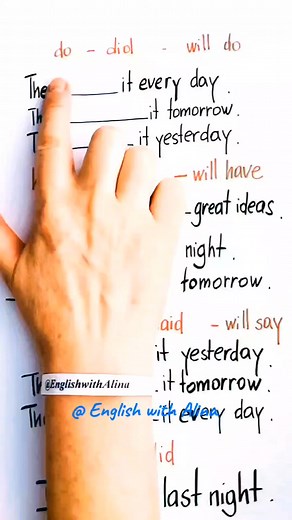 do - did - will do
The ______ it every day.
______ it tomorrow.
______ it yesterday.
- will have
great ideas.
night.
tomorrow.
aid - will say
it yesterday.
@EnglishwithAlina
it tomorrow.
@ English with Alian
it every day.
id
last night.